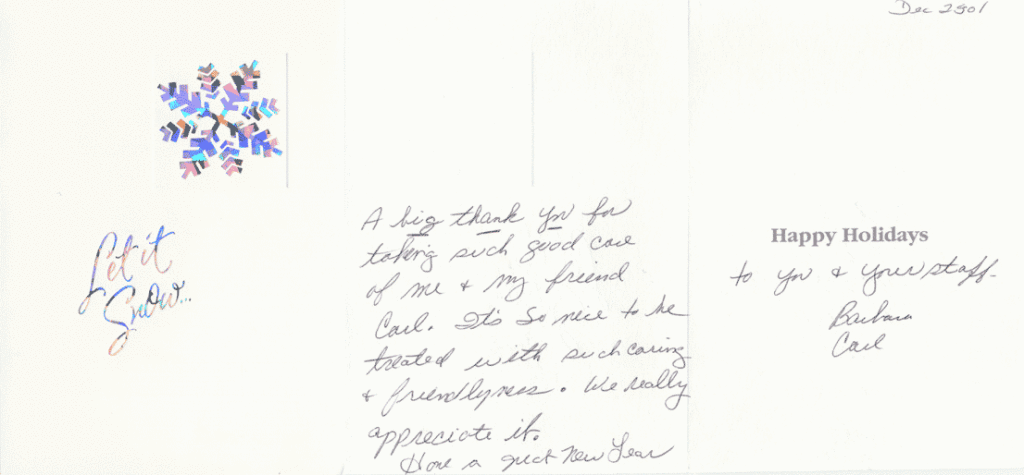 Let it
Snow...
A big thank you for
taking such good care
of me & my friend
Carl. It's so nice to be
treated with such caring
& friendlyness. We really
appreciate it.
Have a great New Year
Dec 2001
Happy Holidays
to you & your staff-
Barbara
Carl